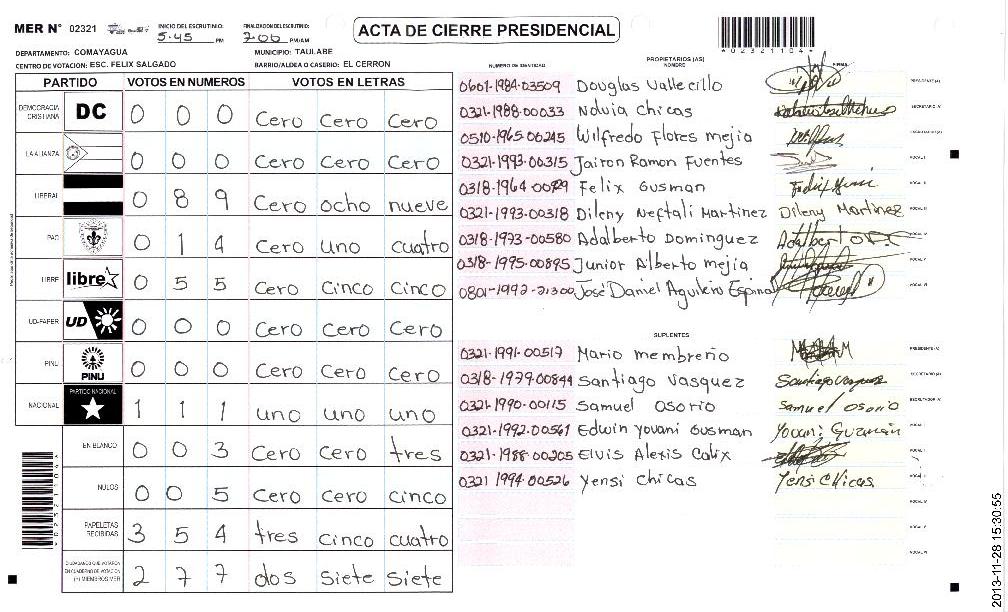 MER N° 02321 INICIO DEL ESCRUTINIO: 5:45 PM FINALIZACION DEL ESCRUTINIO: 7:00 PM/AM
ACTA DE CIERRE PRESIDENCIAL
02321104
DEPARTAMENTO: COMAYAGUA MUNICIPIO: TAULABE
CENTRO DE VOTACION: ESC. FELIX SALGADO BARRIO/ALDEA O CASERIO: EL CERRON
PARTIDO VOTOS EN NUMEROS VOTOS EN LETRAS
DEMOCRACIA CRISTIANA DC 0 0 0 Cero Cero Cero
LA ALIANZA 0 0 0 Cero Cero Cero
LIBERAL 0 8 9 Cero ocho nueve
PAC 0 1 4 Cero uno cuatro
LIBRE libre 0 5 5 Cero Cinco Cinco
UD-FAPER UD 0 0 0 Cero Cero Cero
PINU PINU 0 0 0 Cero Cero Cero
NACIONAL PARTIDO NACIONAL 1 1 1 uno uno uno
EN BLANCO 0 0 3 Cero Cero tres
NULOS 0 0 5 Cero Cero cinco
PAPELETAS RECIBIDAS 3 5 4 tres cinco cuatro
CIUDADANOS QUE VOTARON EN CUADERNO DE VOTACION (+) MIEMBROS MER 2 7 7 dos siete siete
NUMERO DE IDENTIDAD PROPIETARIOS (AS) NOMBRE FIRMA
0601-1984-03509 Douglas Vallecillo PRESIDENTE (A)
0321-1988-00033 Nolvia Chicas SECRETARIO (A)
0510-1965-00245 Wilfredo Flores mejia ESCRUTADOR (A)
0321-1993-00315 Jairon Ramon Fuentes VOCAL I
0318-1964-00 Felix Gusman VOCAL II
0321-1993-00318 Dileny Neftali Martinez Dileny Martinez VOCAL III
0318-1993-00580 Adalberto Dominguez Adalberto VOCAL IV
0318-1995-00895 Junior Alberto mejia VOCAL V
0801-1992-21300 José Daniel Aguilera Espinal VOCAL VI
SUPLENTES
0321-1991-00517 Mario membreño PRESIDENTE (A)
0318-1979-00844 Santiago Vasquez Santiago Vasquez SECRETARIO (A)
0321-1990-00115 Samuel Osorio Samuel Osorio ESCRUTADOR (A)
0321-1992-00561 Edwin Yovani Gusman Yovani Guzmán VOCAL I
0321-1988-00205 Elvis Alexis Calix VOCAL II
0321 1994-00526 Yensi Chicas Yensi Chicas VOCAL III
VOCAL IV
VOCAL V
VOCAL VI
2013-11-28 15:30:55